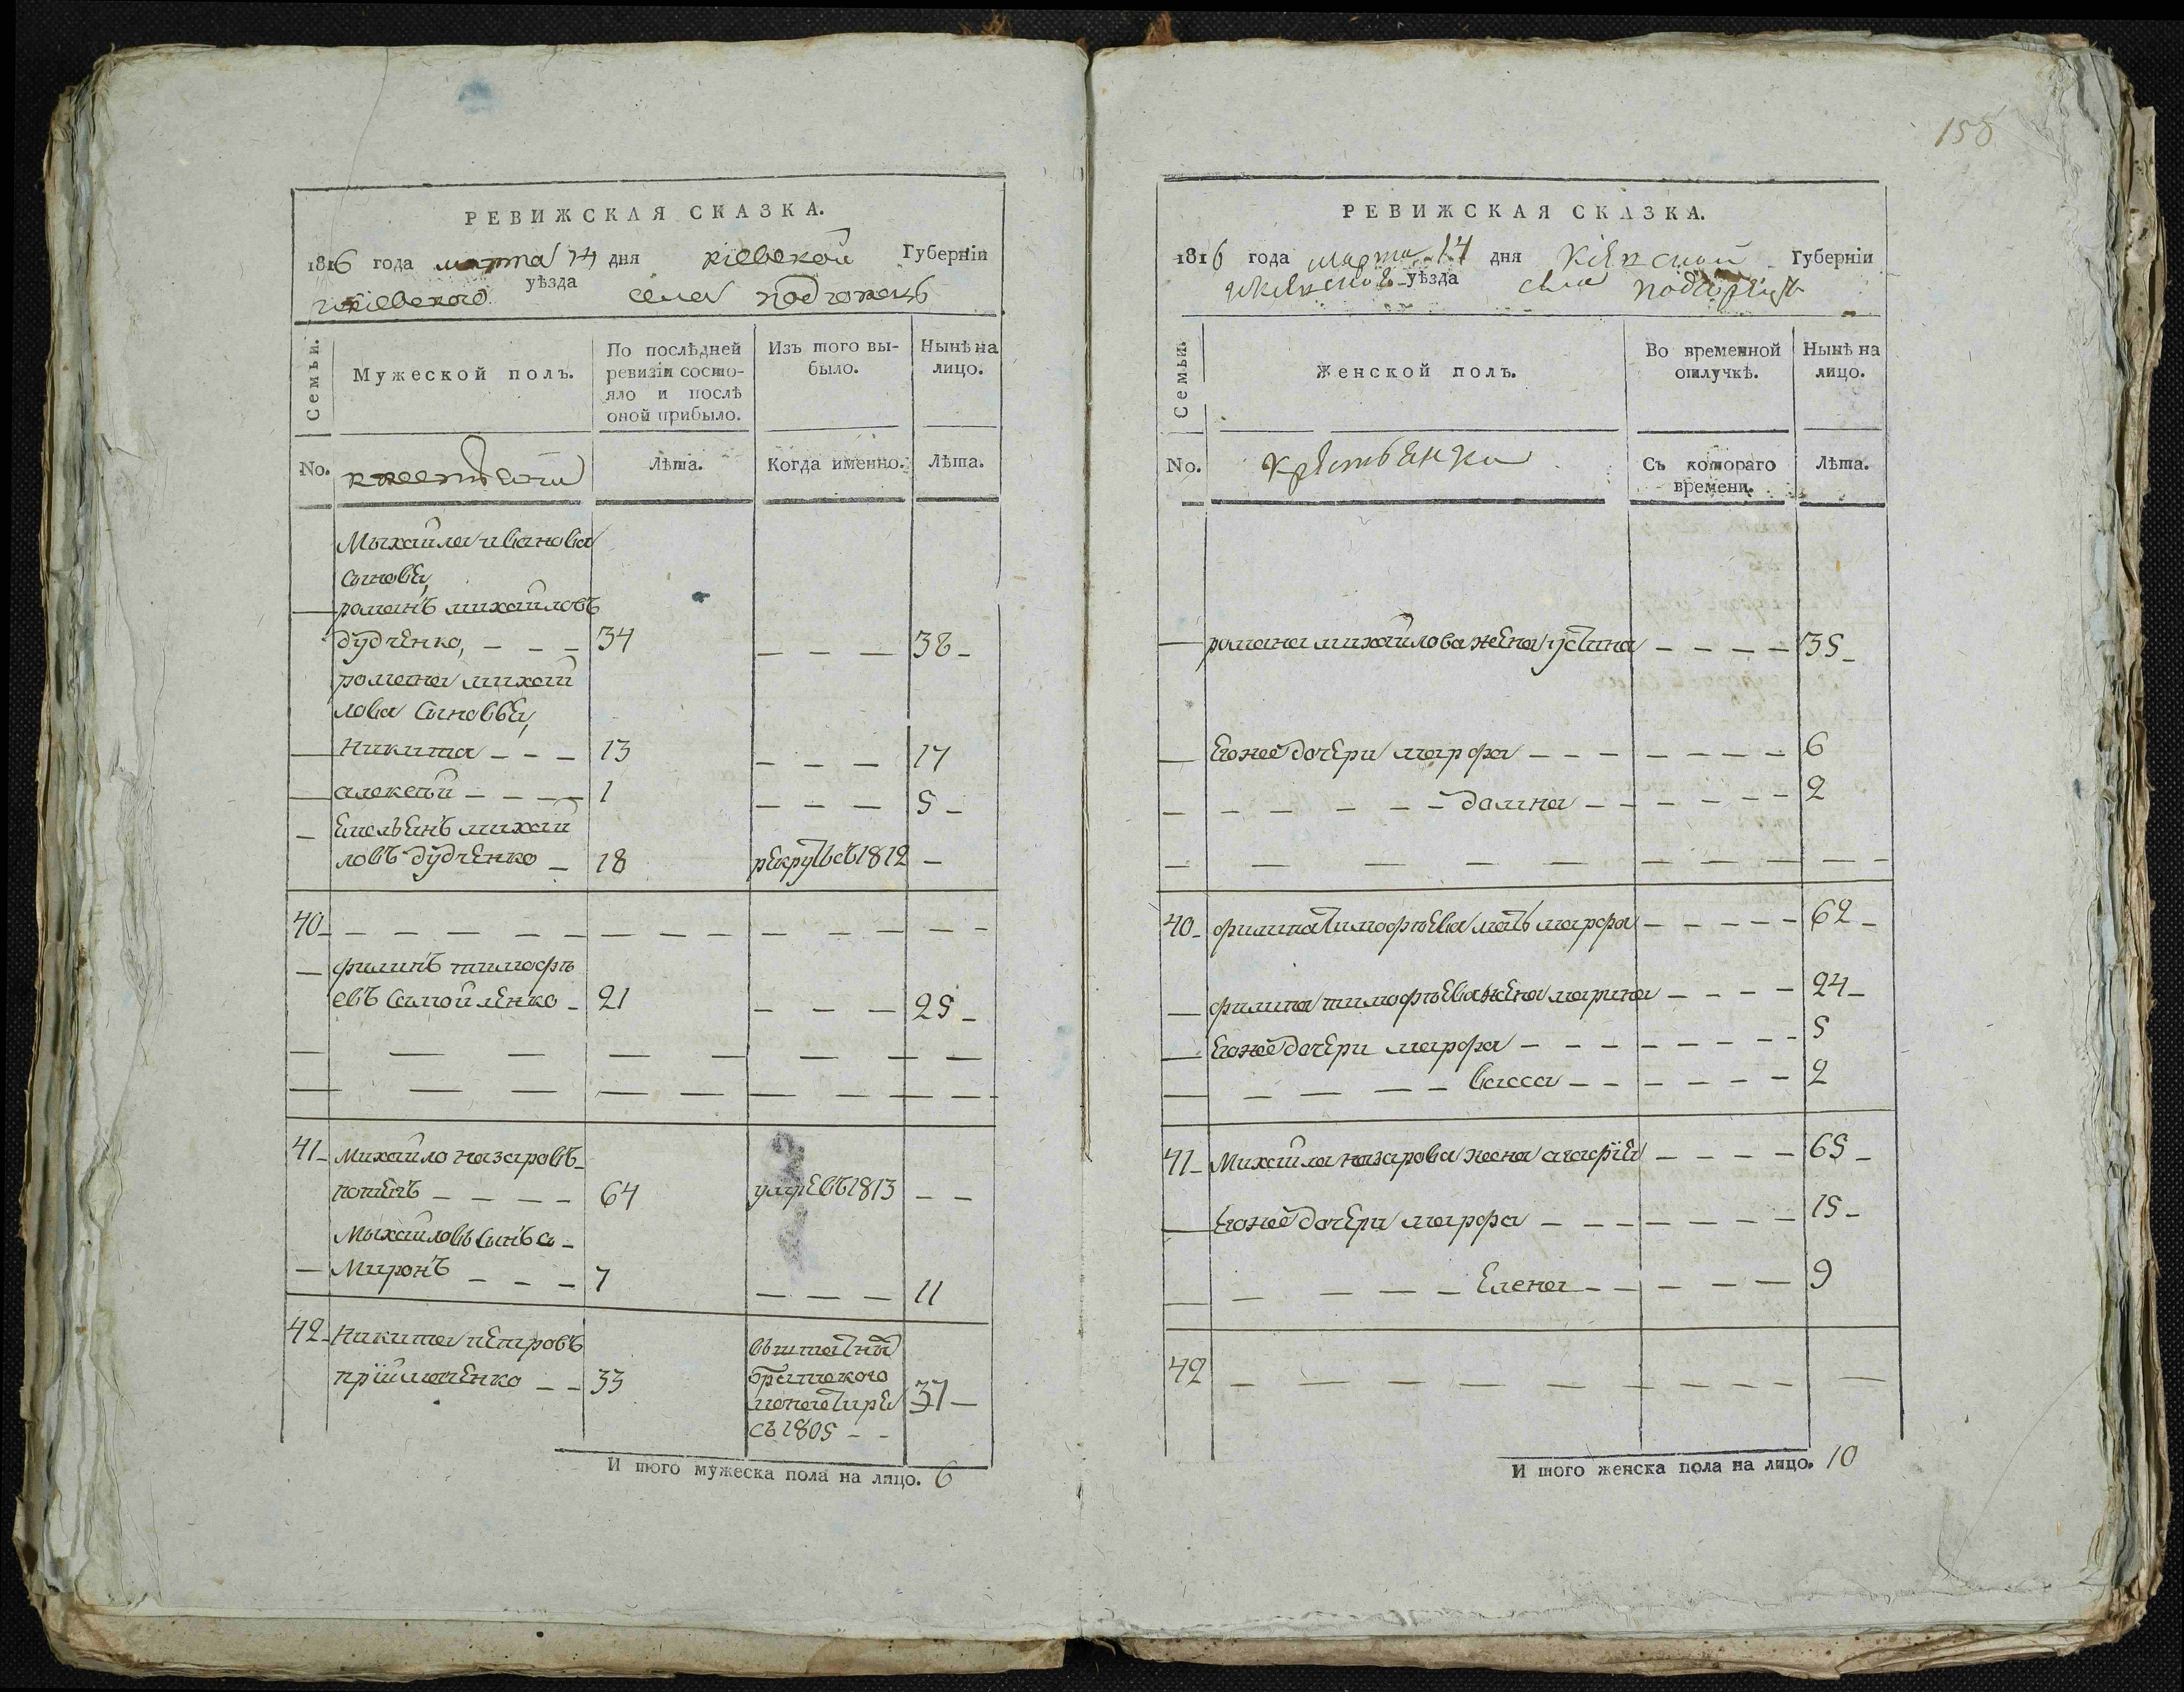 158
РЕВИЖСКАЯ СКАЗКА.
1816 года марта 14 дня киевской Губерніи
икиевского уѣзда села подгорецъ
Семьи.
Мужеской полъ.
По послѣдней ревизіи состояло и послѣ оной прибыло.
Изъ того выбыло.
Нынѣ на лицо.
No.
Лѣта.
Когда именно.
Лѣта.
Михайла иванова
сыновья,
— романъ михайловъ
дудченко, — — — 34 — — — 38 —
романа михай
лова сыновья,
— никита — — — 13 — — — 17
— алексѣй — — — — 1 — — — 5 —
— Емельянъ михай
ловъ дудченко — 18 рекрутъ съ 1812 —
40 — — — — — — — — — — — — — —
— филипъ тимофѣ
евъ самойленко — 21 — — — 25 —
— — — — — — — —
— — — — — — — — —
41 — михайло назаровъ —
— — — — 64 умре въ 1813 — —
Михайловъ сынъ
— Миронъ — — — 7 — — — 11
42 — никита петровъ
пріймаченко — — 33 37 —
монастыре
съ 1805 — —
И того мужеска пола на лицо. 6
РЕВИЖСКАЯ СКАЗКА.
1816 года марта 14 дня Киевской Губерніи
уѣзда села подгорецъ
Семьи.
Женской полъ.
Во временной отлучкѣ.
Нынѣ на лицо.
No.
Съ котораго времени.
Лѣта.
— романа михайлова жена устина — — — — 35 —
— Егожее дочери марфа — — — — — — — 6
— — — — — — — домна — — — — — — 2
— — — — — — — — — —
40 — филипа тимофѣева мать марфа — — — — — 62 —
— филипа тимофѣева жена марина — — — — 24 —
— Егожее дочери марфа — — — — — — — 5
— — — — — васса — — — — — — 2
41 — Михайла назарова жена агафія — — — — 65 —
— Егожее дочери марфа — — — — — — — 15 —
— — — — — — Елена — — — — — 9
42 — — — — — — — — — — —
И того женска пола на лицо. 10